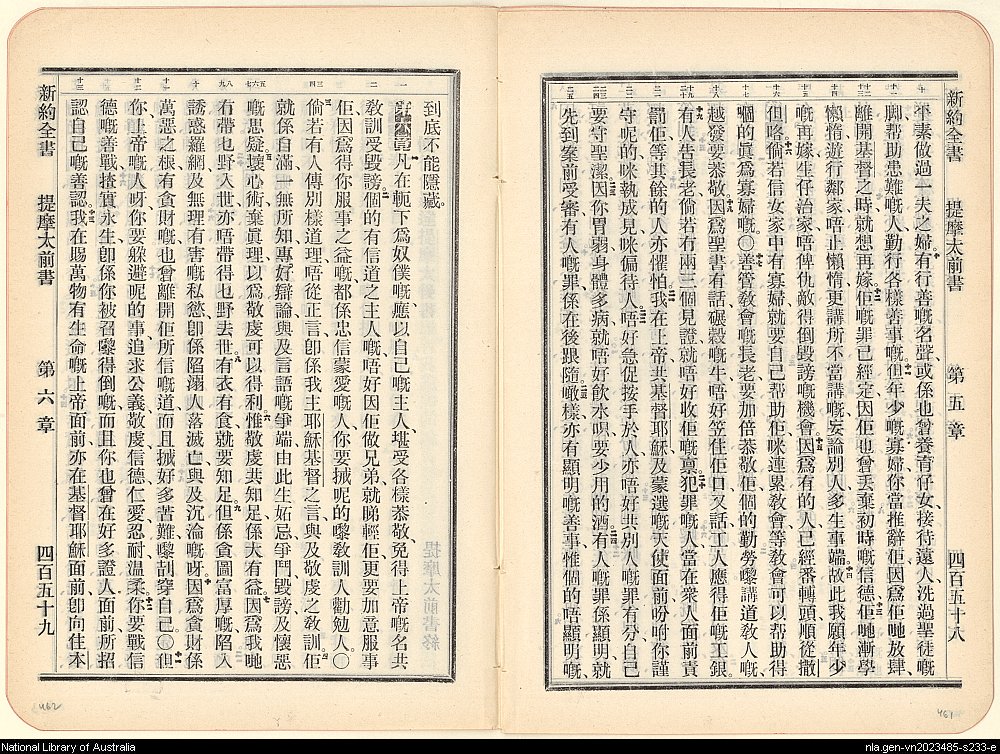 新約全書 提摩太前書 第五章 四百五十八
平素做過一夫之婦、有行善嘅名聲、或係也曾養育仔女、接待遠人、洗過聖徒嘅
脚、帮助患難嘅人、勤行各樣善事嘅、但年少嘅寡婦、你當推辭佢、因爲佢哋放肆、
離開基督之時、就想再嫁、佢嘅罪已經定、因佢也曾丟棄初時嘅信德、佢哋漸學
懶惰、遊行鄰家、唔止懶惰、更講所不當講嘅、妄論別人、多生事端、故此我願年少
嘅再嫁、生仔治家、唔俾仇敵得倒毀謗嘅機會、因爲有的人已經番轉頭順從撒
但咯、倘若信女家中有寡婦、就要自己帮助佢、咪連累敎會、等敎會可以帮助得
嗰的眞爲寡婦嘅。○善管敎會嘅長老、要加倍恭敬佢、個的勤勞嚟講道敎人嘅、
越發要恭敬、因爲聖書有話、碾穀嘅牛、唔好笠住佢口、又話、工人應得佢嘅工銀。
有人告長老、倘若冇兩三個見證、就唔好收佢嘅禀、犯罪嘅人、當在衆人面前責
罰佢、等其餘的人亦懼怕、我在上帝共基督耶穌、及蒙選嘅天使面前、吩咐你謹
守呢的、咪執成見、咪偏待人、唔好急促按手於人、亦唔好共別人嘅罪有分、自己
要守聖潔、因你胃弱、身體多病、就唔好飲水唄、要少用的酒、有人嘅罪係顯明、就
先到案前受審、有人嘅罪係在後跟隨、噉樣亦有顯明嘅善事、惟個的唔顯明嘅、
到底不能隱藏。
第六章 凡在軛下爲奴僕嘅、應以自己嘅主人、堪受各樣恭敬、免得上帝嘅名共
敎訓受毀謗、個的有信道之主人嘅、唔好因佢做兄弟、就睇輕佢、更要加意服事
佢、因爲得你服事之益嘅、都係忠信蒙愛嘅人、你要摵呢的嚟敎訓人勸勉人。○
倘若有人傳別樣道理、唔從正言、卽係我主耶穌基督之言、與及敬虔之敎訓、佢
就係自滿、一無所知、專好辯論、與及言語嘅爭端、由此生妒忌爭鬥毀謗、及懷惡
嘅思疑、壞心術棄眞理、以爲敬虔可以得利、惟敬虔共知足、係大有益、因爲我哋
冇帶乜野入世、亦唔帶得乜野去世、有衣有食、就要知足、但係貪圖富厚嘅、陷入
誘惑羅網、及無理有害嘅私慾、卽係陷溺人落滅亡與及沉淪嘅呀、因爲貪財係
萬惡之根、有貪財嘅、也曾離開佢所信嘅道、而且摵好多苦難嚟刮穿自己。○但
你、上帝嘅人呀、你要躱避呢的事、追求公義敬虔信德仁愛忍耐温柔、你要戰信
德嘅善戰、揸實永生、卽係你被召嚟得倒嘅、而且你也曾在好多證人面前、所招
認自己嘅善認、我在賜萬物有生命嘅上帝面前、亦在基督耶穌面前、卽向住本
新約全書 提摩太前書 第六章 四百五十九
462
461
National Library of Australia
nla.gen-vn2023485-s233-e